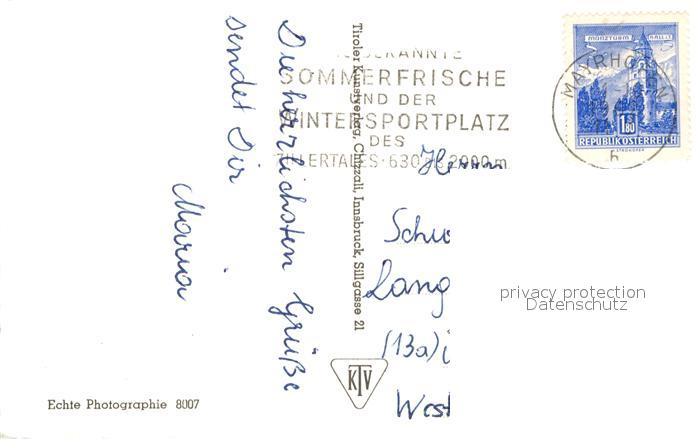 Die herrlichsten Grüße
sendet Dir
Maria
Echte Photographie 8007
Tiroler Kunstverlag, Chizzali, Innsbruck, Sillgasse 21
KTV
BEKANNTE
SOMMERFRISCHE
UND DER
WINTERSPORTPLATZ
DES
ZILLERTALES · 630 BIS 2000 m
MAYRHOFEN
h
MÜNZTURM HALL i.T.
1.80
REPUBLIK ÖSTERREICH
Herrn
Lang
(13a)
West
privacy protection
Datenschutz